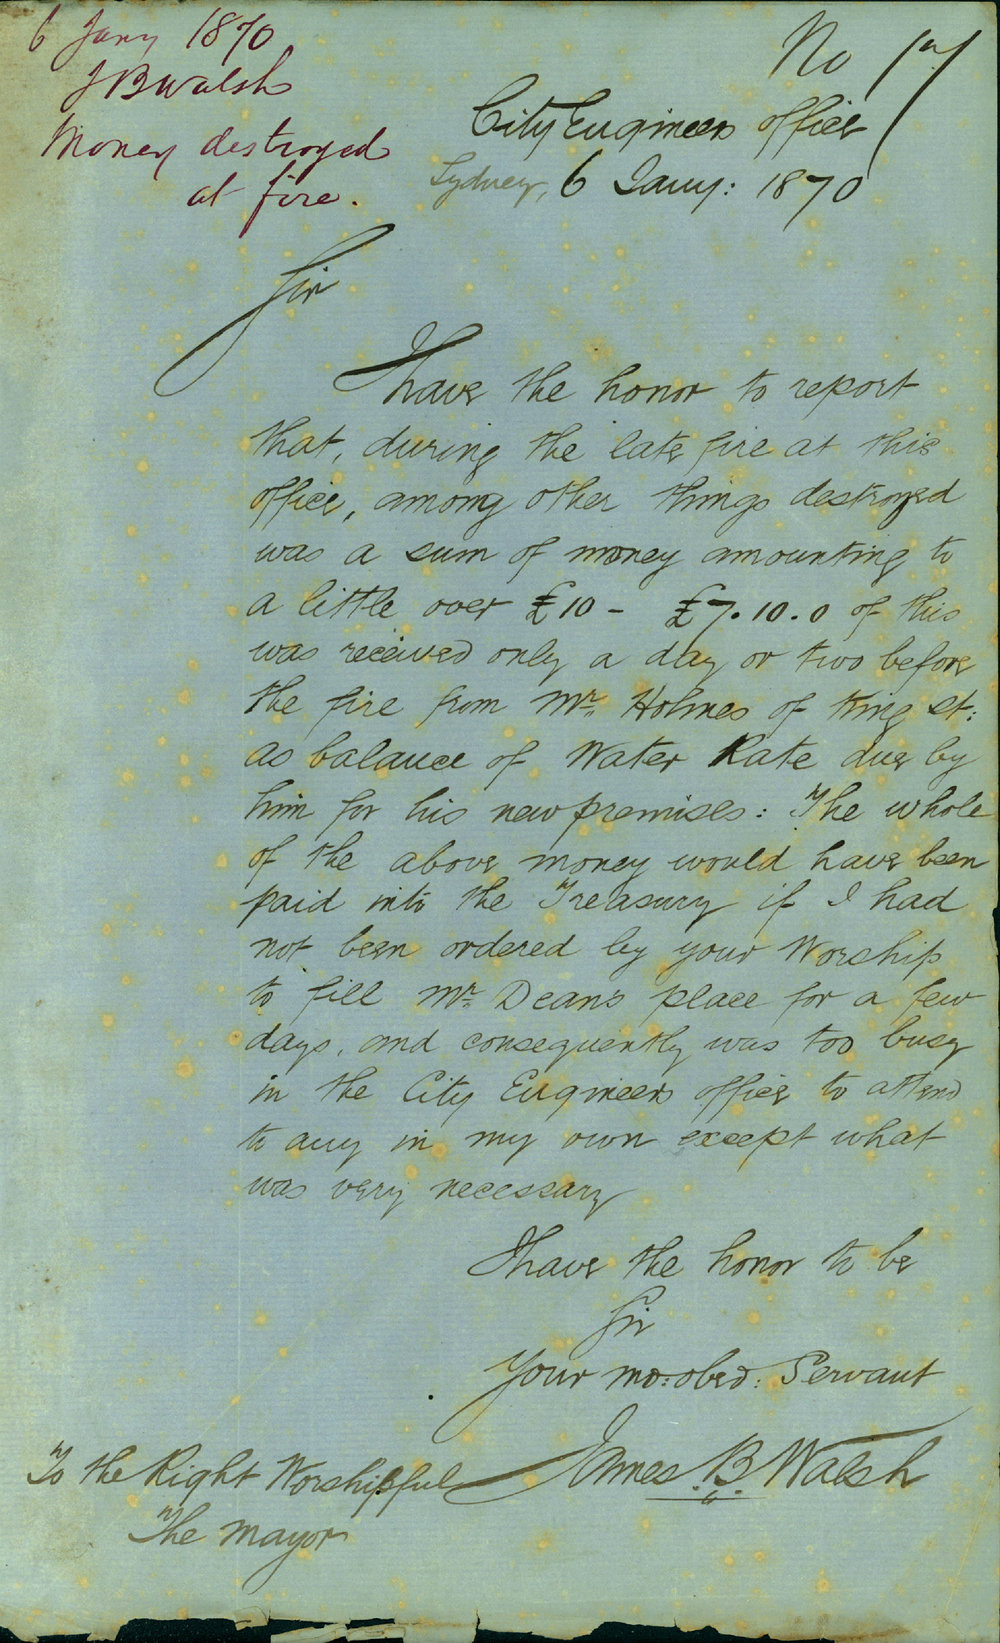 6 Jany 1870
JB Walsh
Money destroyed
at fire.
No 17
City Engineers office
Sydney, 6 Jany: 1870
Sir
I have the honor to report
that, during the late fire at this
office, among other things destroyed
was a sum of money amounting to
a little over £10 - £7.10.0 of this
was received only a day or two before
the fire from Mr. Holmes of King St:
as balance of Water Rate due by
him for his new premises: The whole
of the above money would have been
paid into the Treasury if I had
not been ordered by your Worship
to fill Mr. Deans place for a few
days, and consequently was too busy
in the City Engineers office to attend
to any in my own except what
was very necessary
I have the honor to be
Sir
Your mo: obed: Servant
James B. Walsh
To the Right Worshipful
The Mayor